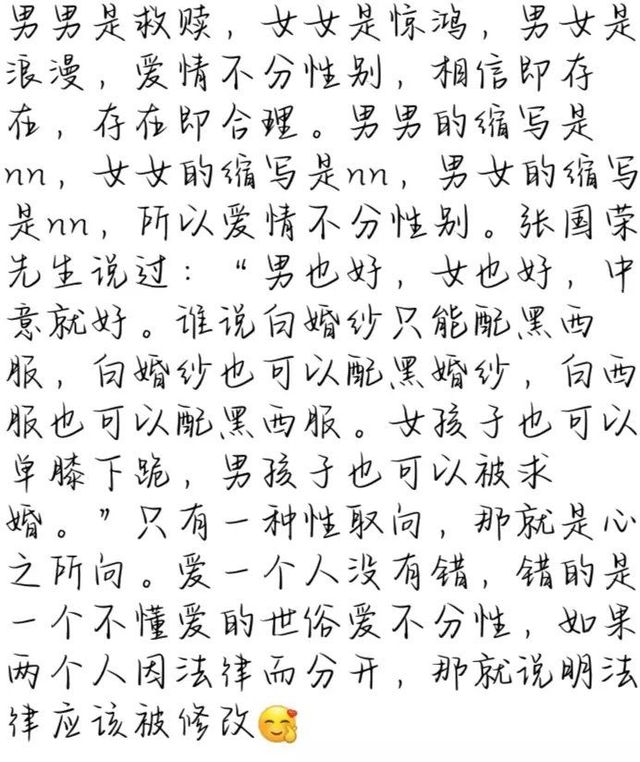 男男是救赎，女女是惊鸿，男女是
浪漫，爱情不分性别，相信即存
在，存在即合理。男男的缩写是
nn，女女的缩写是nn，男女的缩写
是nn，所以爱情不分性别。张国荣
先生说过：“男也好，女也好，中
意就好。谁说白婚纱只能配黑西
服，白婚纱也可以配黑婚纱，白西
服也可以配黑西服。女孩子也可以
单膝下跪，男孩子也可以被求
婚。”只有一种性取向，那就是心
之所向。爱一个人没有错，错的是
一个不懂爱的世俗爱不分性，如果
两个人因法律而分开，那就说明法
律应该被修改🥰